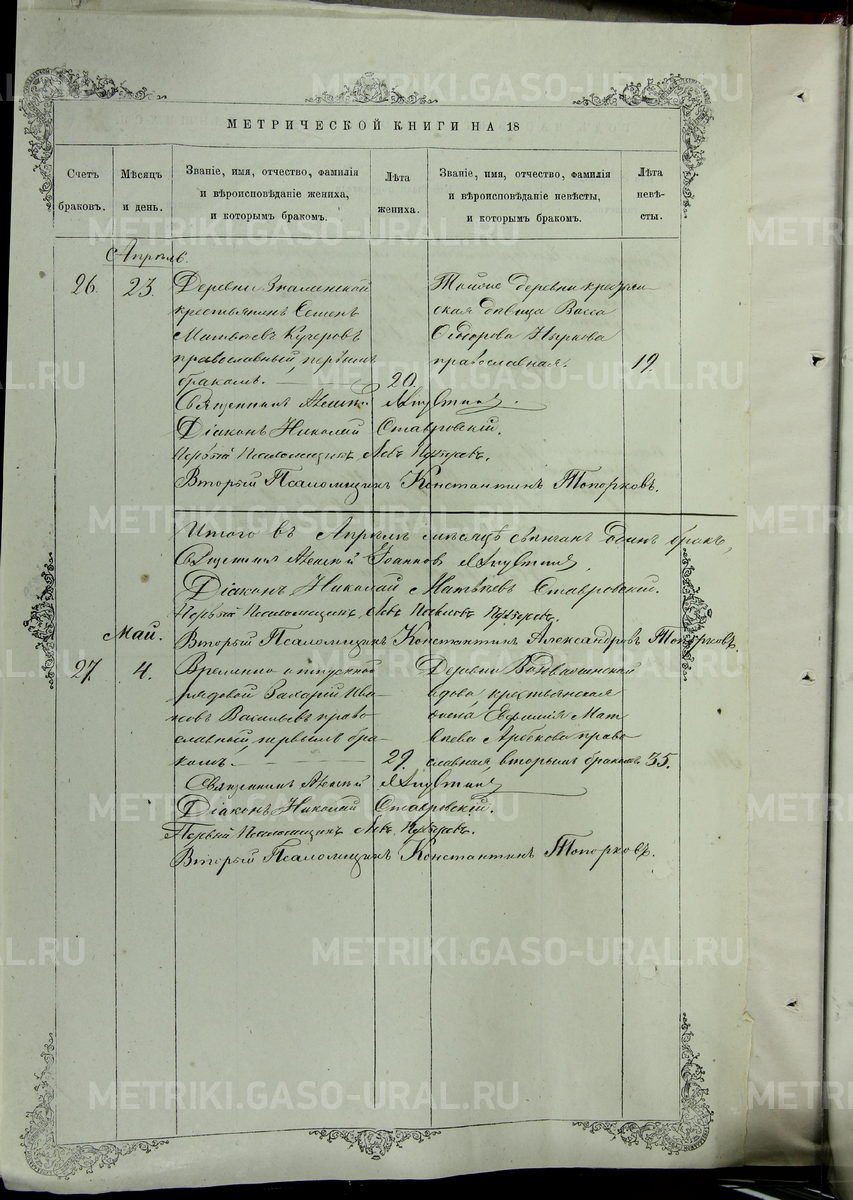 METRIKI.GASO-URAL.RU
МЕТРИЧЕСКОЙ КНИГИ НА 18
Счетъ браковъ.
Мѣсяцъ и день.
Званіе, имя, отчество, фамилія и вѣроисповѣданіе жениха, и которымъ бракомъ.
Лѣта жениха.
Званіе, имя, отчество, фамилія и вѣроисповѣданіе невѣсты, и которымъ бракомъ.
Лѣта невѣ-сты.
Апрѣль.
26. 23.
Деревни Знаменской
крестьянинъ Семенъ
Матвѣевъ Кучеровъ
православный, первымъ
бракомъ. 20.
Тойже деревни крестьян-
ская дѣвица Васса
Сидорова
православная. 19.
Священникъ Алексѣй
Діаконъ Николай Ставровскій.
Первый Псаломщикъ Левъ
Вторый Псаломщикъ Константинъ Топорковъ.
Итого въ Апрѣлѣ мѣсяцѣ вѣнчанъ Одинъ бракъ,
Священникъ Алексѣй Іоанновъ
Діаконъ Николай Матвѣевъ Ставровскій.
Первый Псаломщикъ Левъ Павловъ
Май.
Вторый Псаломщикъ Константинъ Александровъ Топорковъ
27. 4.
Временно отпускной
рядовой Захарій Ива-
новъ Васильевъ право
славный, первымъ бра-
комъ. 29.
Деревни
вдова крестьянская
жена Евфимія Мат
вѣева право
славная, вторымъ бракомъ 35.
Священникъ Алексѣй
Діаконъ Николай Ставровскій.
Первый Псаломщикъ Левъ
Вторый Псаломщикъ Константинъ Топорковъ.